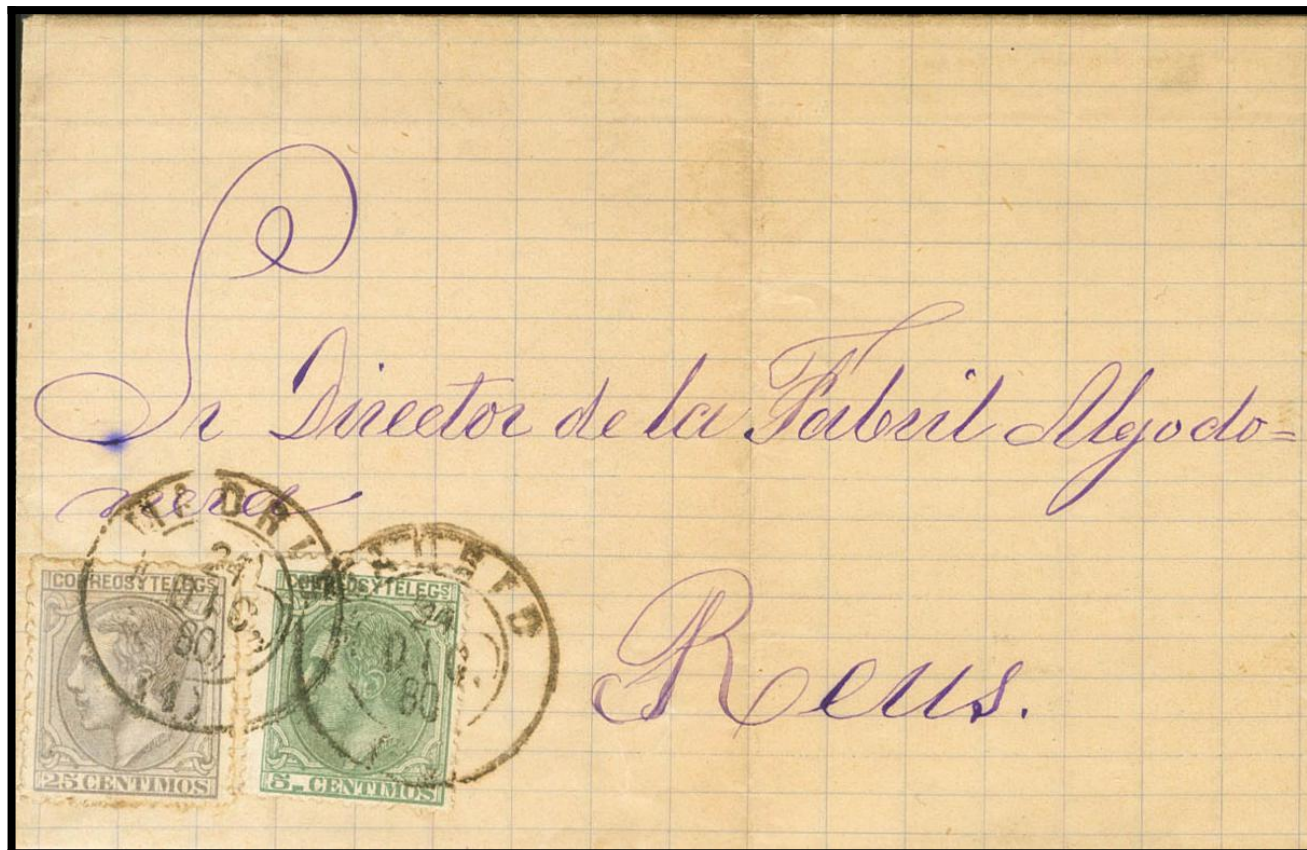 Sr Director de la Fabril Algodo=
nera
Reus.
MADRID
24
DIC
80
(4)
MADRID
24
DIC
80
CORREOS Y TELEGS
25 CENTIMOS
CORREOS Y TELEGS
5 CENTIMOS